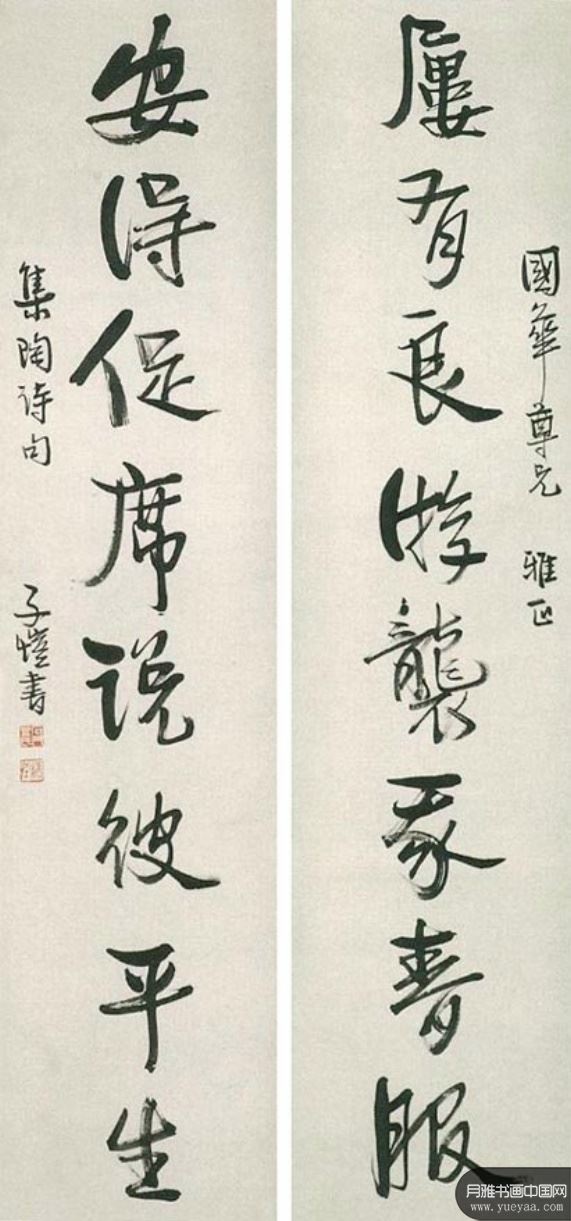 國華尊兄 雅正
屢有良游襲我春服
安得促席説彼平生
集陶詩句 子愷書
月雅书画中国网
www.yueyaa.com